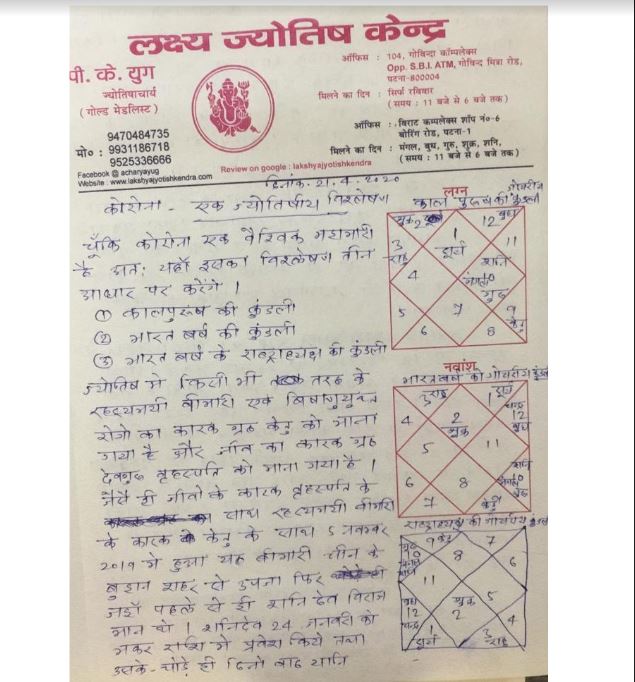 लक्ष्य ज्योतिष केन्द्र
पी. के. युग
ज्योतिषाचार्य
(गोल्ड मेडलिस्ट)
9470484735
मो० : 9931186718
9525336666
Facebook @ acharyayug
Website : www.lakshyajyotishkendra.com
ऑफिस : 104, गोविन्दा कॉम्पलेक्स
Opp. S.B.I. ATM, गोविन्द मित्रा रोड,
पटना-800004
मिलने का दिन : सिर्फ रविवार
(समय : 11 बजे से 6 बजे तक)
ऑफिस : विराट कम्पलेक्स शॉप नं०-6
बोरिंग रोड, पटना-1
मिलने का दिन : मंगल, बुध, गुरु, शुक्र, शनि,
(समय : 11 बजे से 6 बजे तक)
Review on google : lakshyajyotishkendra
दिनांक. 21.4.2020
कोरोना - एक ज्योतिषीय विश्लेषण
चूँकि कोरोना एक वैश्विक महामारी
है अतः यहाँ इसका विश्लेषण तीन
आधार पर करेंगे ।
① कालपुरूष की कुंडली
② भारत वर्ष की कुंडली
③ भारत वर्ष के राष्ट्राध्यक्ष की कुंडली
ज्योतिष मे किसी भी तरह के
रहस्यमयी बीमारी एवं विषाणुयुक्त
रोगो का कारक ग्रह केतु को माना
गया है और जीव का कारक ग्रह
देवगुरु बृहस्पति को माना गया है ।
जैसे ही जीवो के कारक बृहस्पति के
साथ रहस्यमयी बीमारी
के कारक केतु के साथ 5 नवम्बर
2019 मे हुआ यह बीमारी चीन के
वुहान शहर से उपजा फिर
जहाँ पहले से ही शनि देव विराज
मान थे । शनिदेव 24 जनवरी को
मकर राशि मे प्रवेश किये तथा
उसके थोड़े ही दिनो बाद यानि
लग्न
काल पुरूष की गोचरीय कुंडली
शुक्र 2
12 बुध
1
सूर्य
3
राहु
11
4
शनि
मंगल 10
गुरु
5
7
9
केतु
6
8
नवांश
भारतवर्ष की गोचरीय कुंडली
3 राहु
1 सूर्य
4
2
शुक्र
चन्द्र
12
बुध
5
11
6
8
शनि
मंगल 10
गुरु
7
केतु
राष्ट्राध्यक्ष की गोचरीय कुंडली
9 केतु
7
गुरु
10
मंगल
शनि
8
6
11
बुध
12
चन्द्र
शुक्र
2
5
4
1
सूर्य
3
राहु